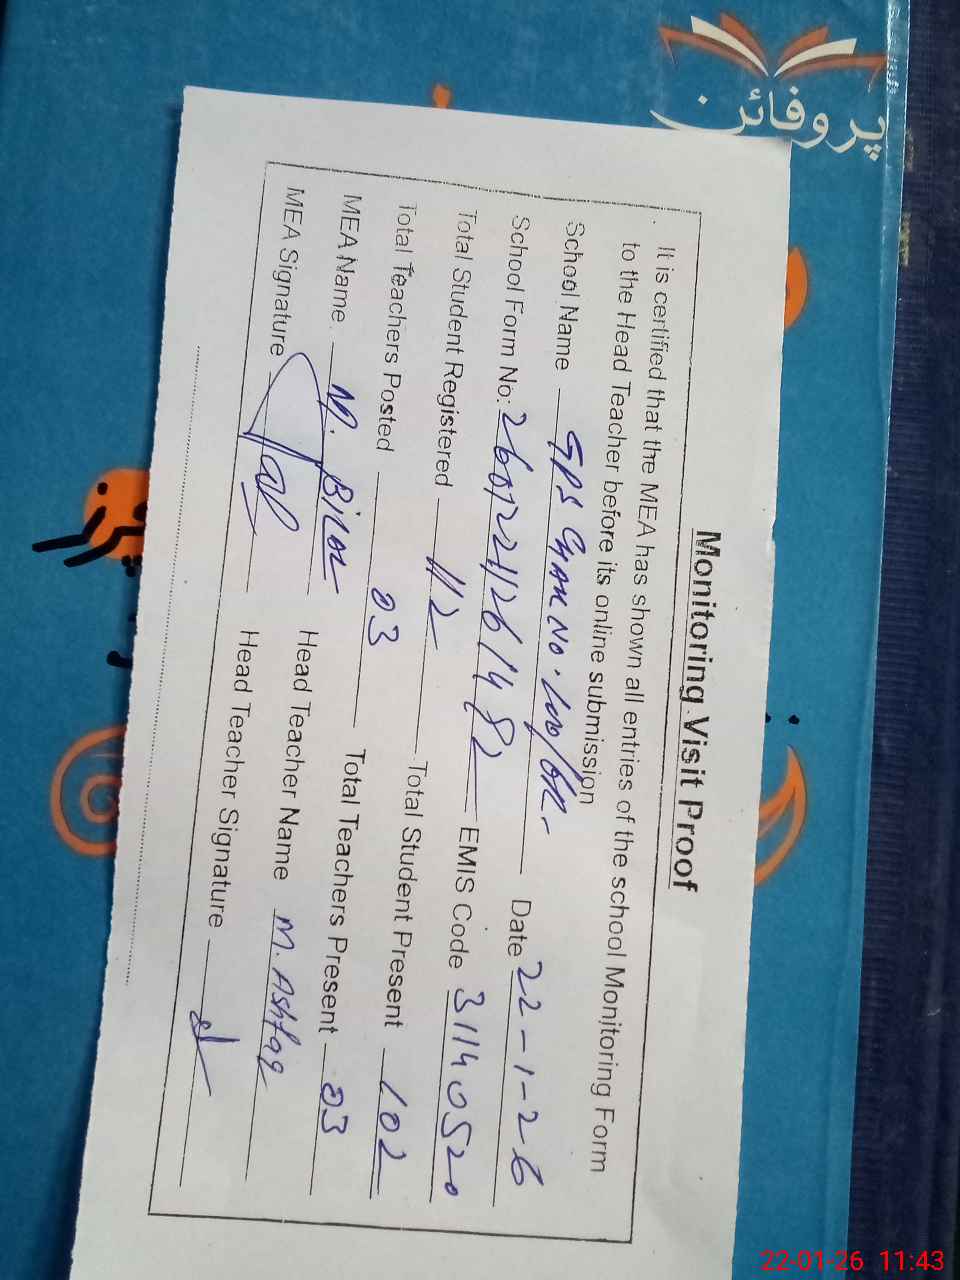 پروفائن
Monitoring Visit Proof
It is certified that the MEA has shown all entries of the school Monitoring Form
to the Head Teacher before its online submission
School Name GPS Chak No. 100/6R- Date 22-1-26
School Form No: 260122112614 82 EMIS Code 31140520
Total Student Registered 112 Total Student Present 102
Total Teachers Posted 03 Total Teachers Present 03
MEA Name. M. Bilal Head Teacher Name M. Ashfaq
MEA Signature Head Teacher Signature
22-01-26 11:43